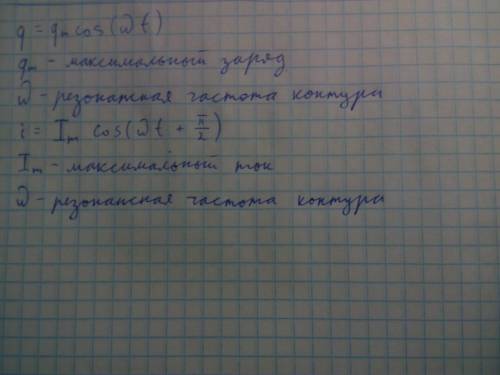 q = qm cos(ωt)
qm - максимальный заряд
ω - резонатная частота контура
i = Im cos(ωt + π/2)
Im - максимальный ток
ω - резонансная частота контура